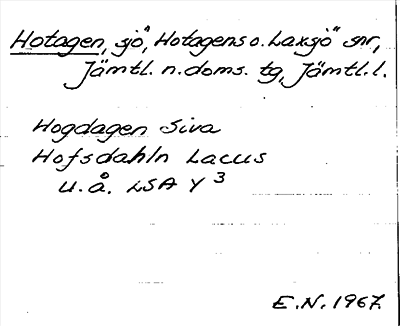 Hotagen, sjö", Hotagens o. Laxsjö" snr,
Jämtl. n. doms. tg, Jämtl. l.
Hogdagen Siva
Hofsdahln Lacus
u. å. LSA Y 3
E.N. 1967.